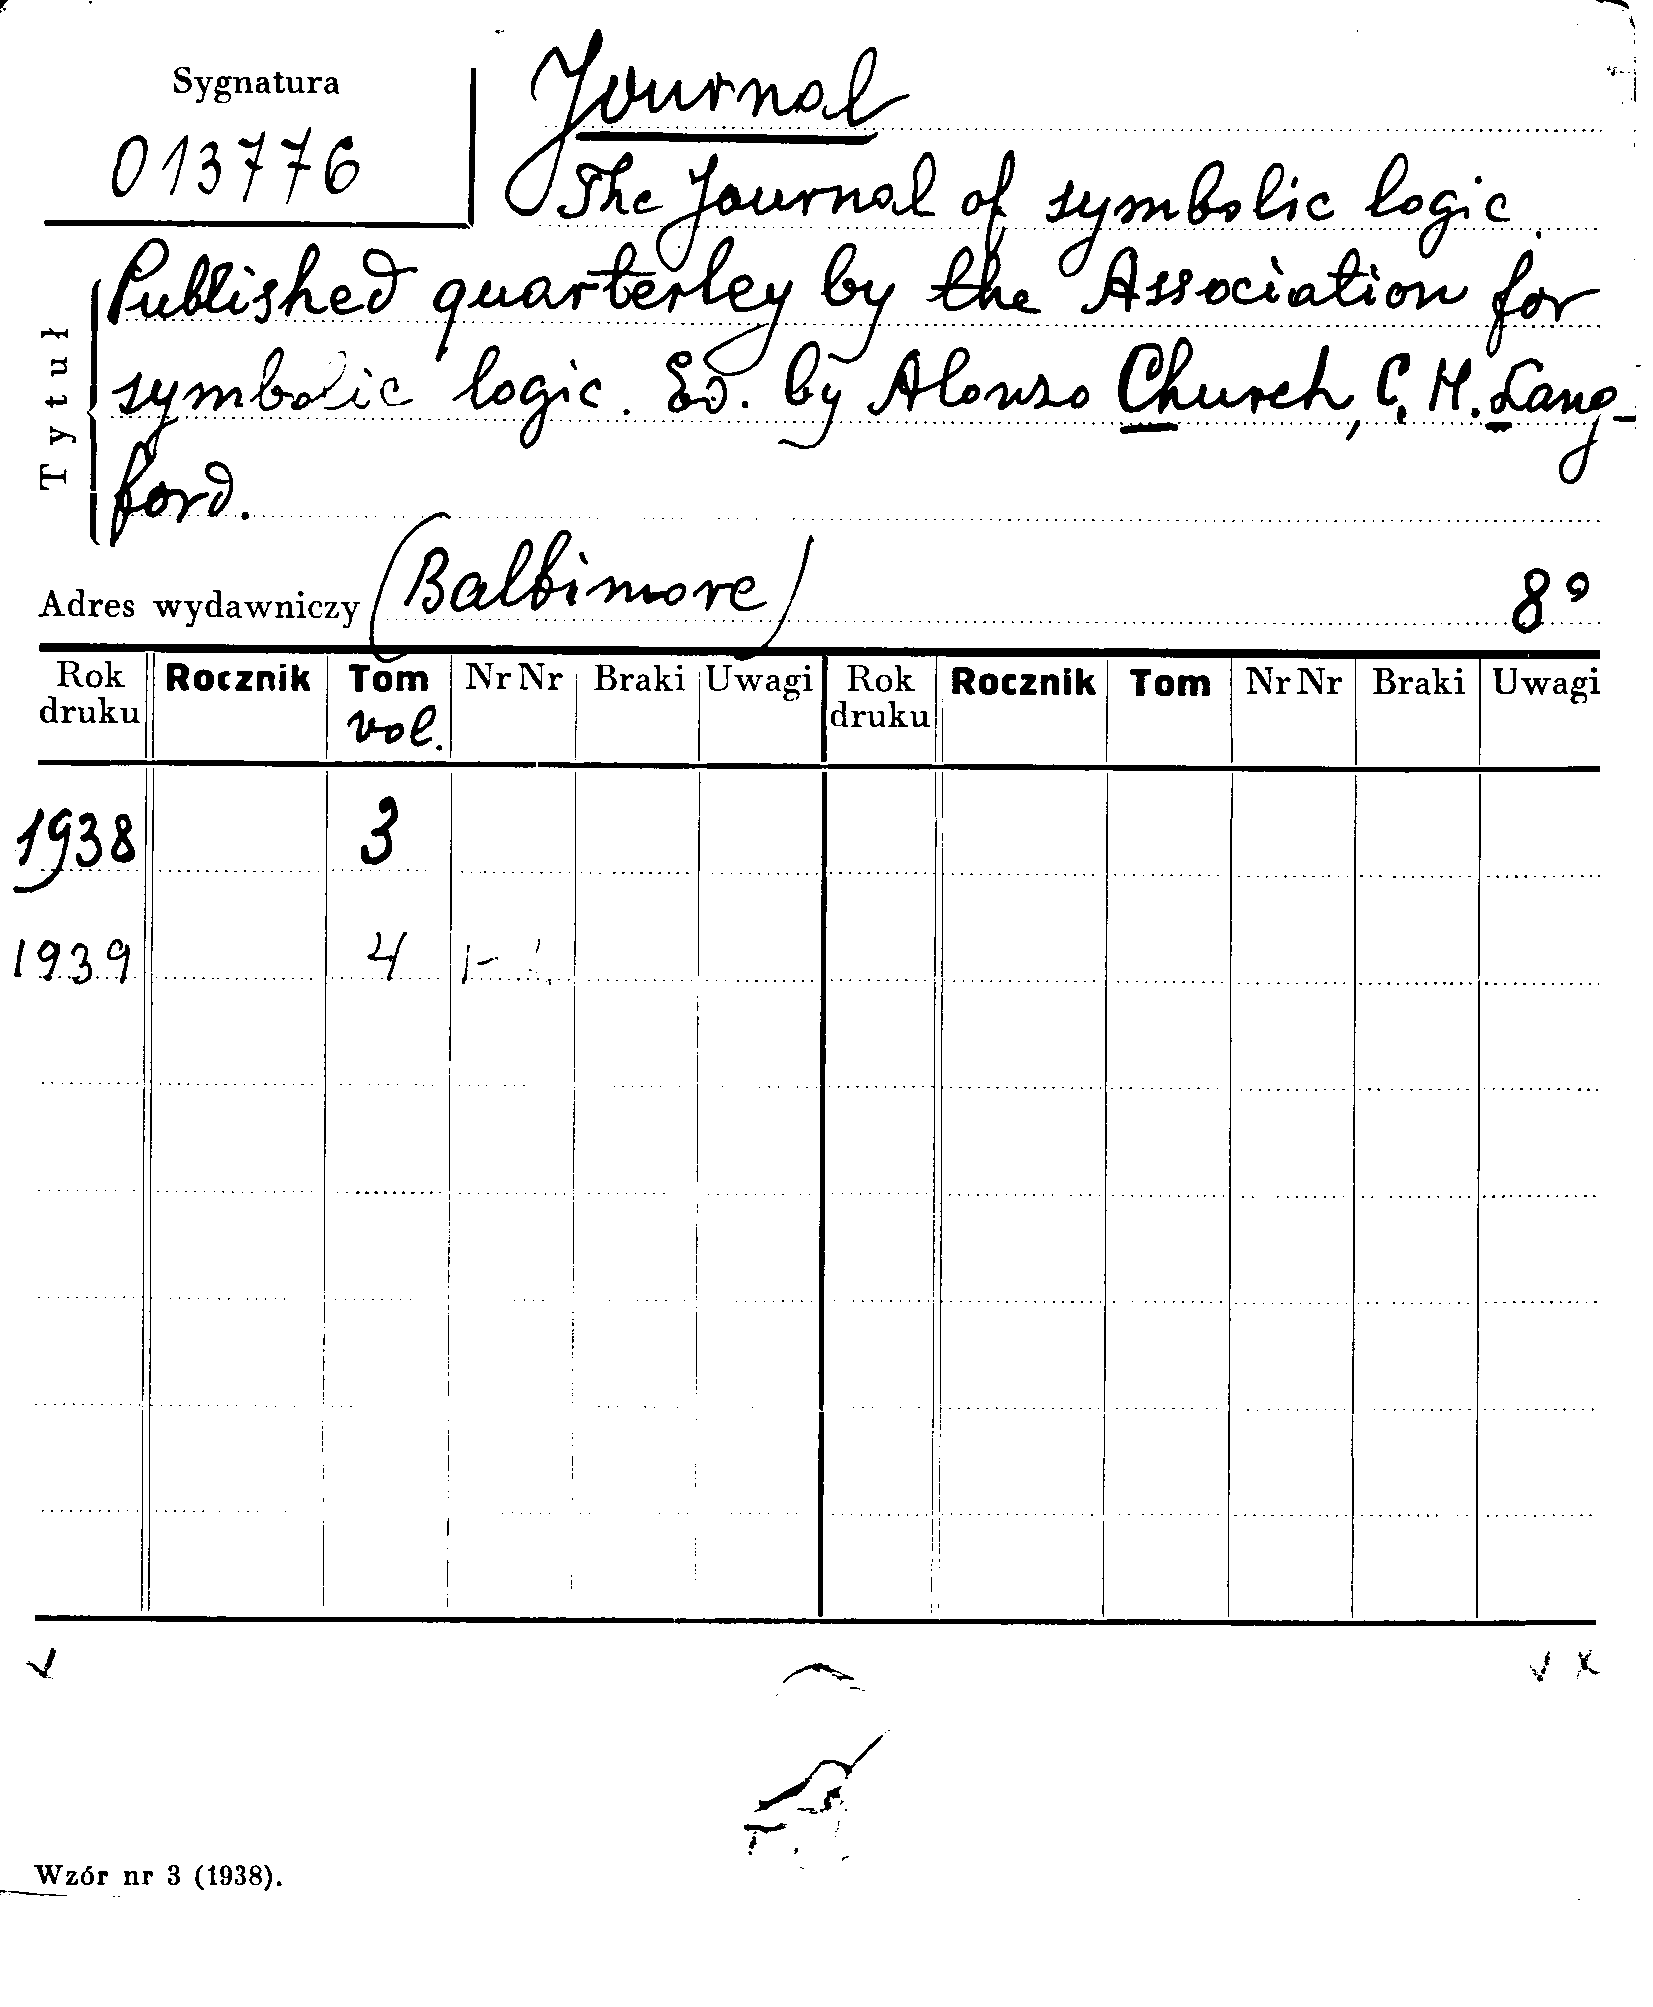 Sygnatura
013776
Journal
The Journal of symbolic logic.
Published quarterley by the Association for
symbolic logic. Ed. by Alonzo Church, C. H. Lang-
ford.
Tytuł
Adres wydawniczy (Baltimore) 8°
Rok druku Rocznik Tom vol. Nr Nr Braki Uwagi Rok druku Rocznik Tom Nr Nr Braki Uwagi
1938 3
1939 4 1-
Wzór nr 3 (1938).